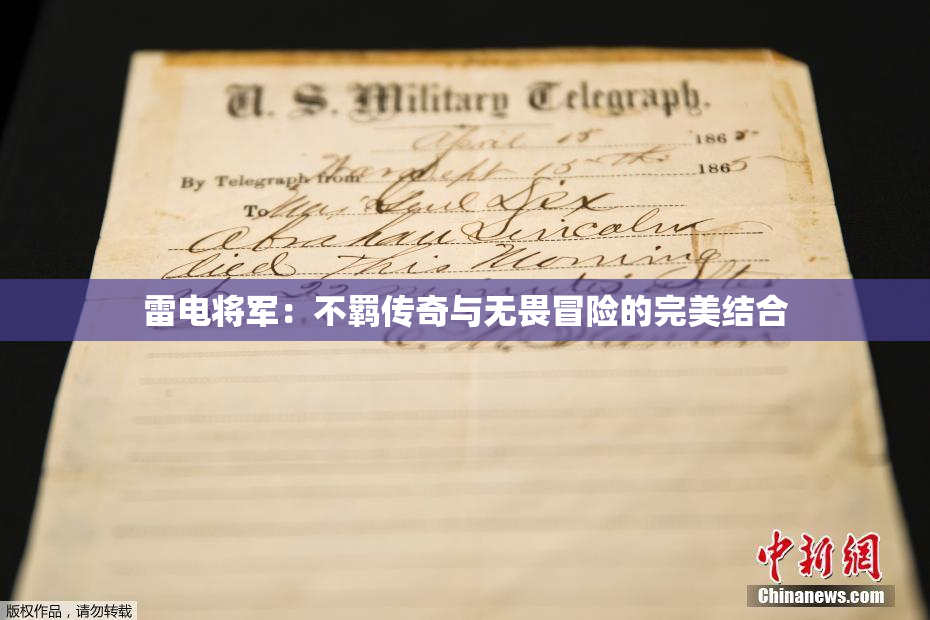 U. S. Military Telegraph.
April 15 1865
By Telegraph from War Dept 15th 1865
To Maj Genl Dix
Abraham Lincoln
died This Morning
at 22 minutes after
E. M. Stanton
雷电将军：不羁传奇与无畏冒险的完美结合
中新網
Chinanews.com
版权作品，请勿转载